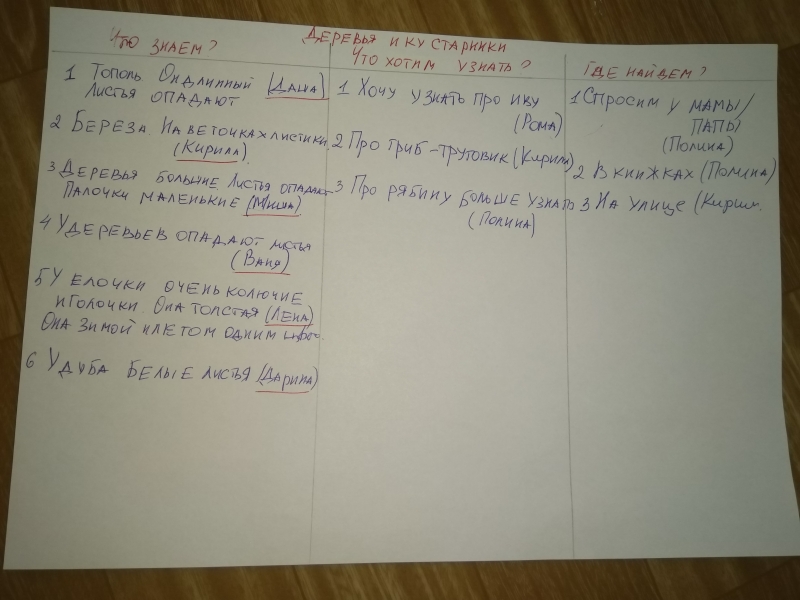 Деревья и кустарники
Что знаем?
1 Тополь Он длинный (Даша)
Листья опадают
2 Береза. На веточках листики.
(Кирилл)
3 Деревья большие Листья опадают
Палочки маленькие (Миша)
4 У деревьев опадают листья
(Ваня)
5 У елочки очень колючие
иголочки. Она толстая (Лена)
Она зимой и летом одним цвето.
6 У дуба белые листья (Дарина)
Что хотим узнать?
1 Хочу узнать про иву
(Рома)
2 Про гриб-трутовик (Кирилл)
3 Про рябину больше узнать
(Полина)
Где найдем?
1 Спросим у мамы/
папы
(Полина)
2 В книжках (Полина)
3 На улице (Кирилл.